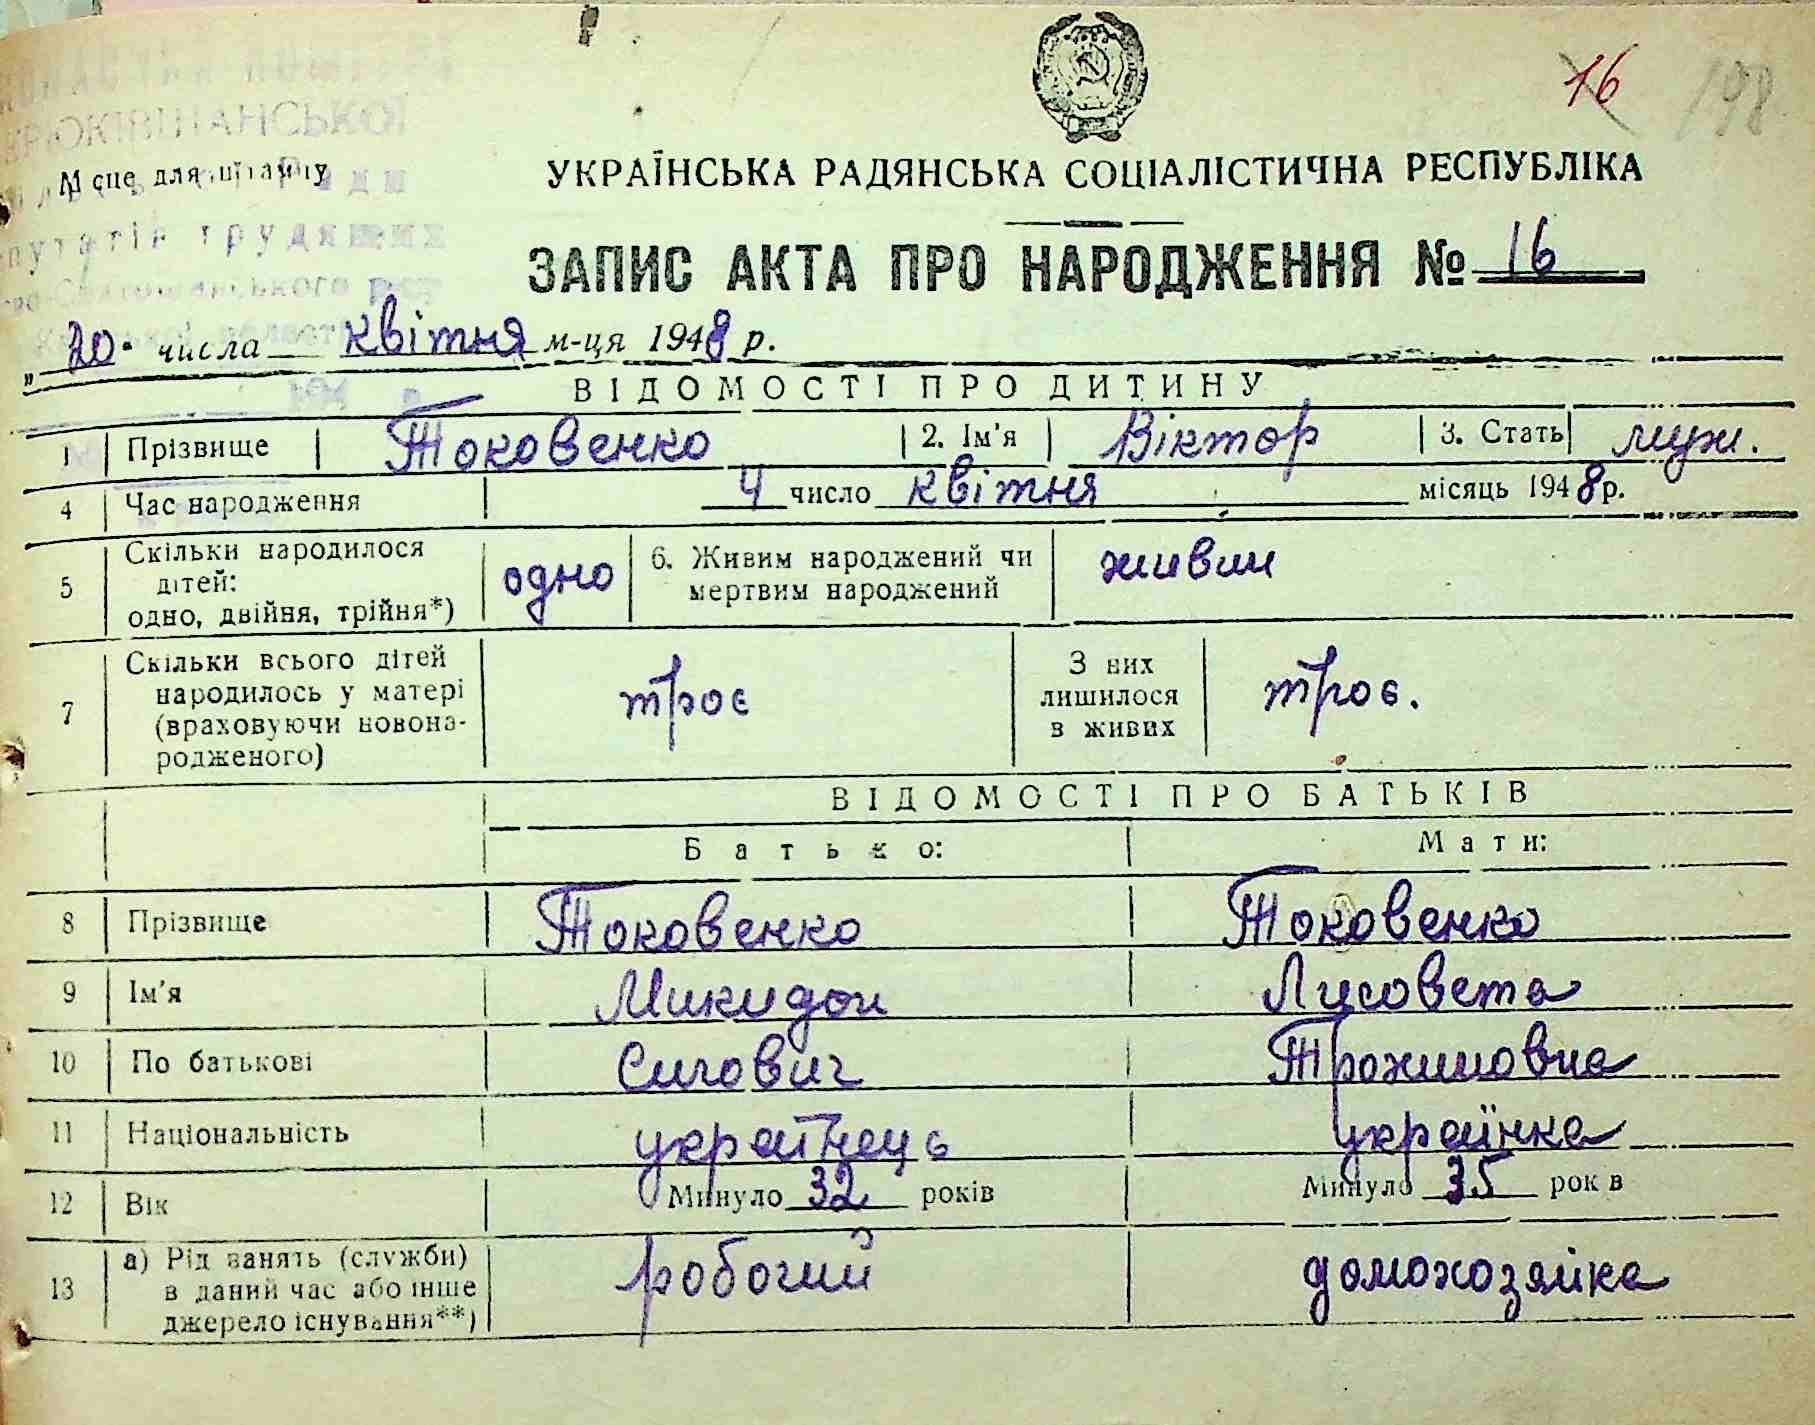 16 198
КРЮКІВЩАНСЬКОЇ
Місце для штампу
Ради
УКРАЇНСЬКА РАДЯНСЬКА СОЦІАЛІСТИЧНА РЕСПУБЛІКА
путатів трудящих
ЗАПИС АКТА ПРО НАРОДЖЕННЯ № 16
„20" числа квітня м-ця 1948 р.
ВІДОМОСТІ ПРО ДИТИНУ
1 Прізвище Токовенко 2. Ім'я Віктор 3. Стать муж.
4 Час народження 4 число квітня місяць 1948 р.
5 Скільки народилося дітей: одно, двійня, трійня*) одно 6. Живим народжений чи мертвим народжений живим
7 Скільки всього дітей народилось у матері (враховуючи новонародженого) троє З них лишилося в живих троє.
ВІДОМОСТІ ПРО БАТЬКІВ
Батько: Мати:
8 Прізвище Токовенко Токовенко
9 Ім'я Микидон Лисовета
10 По батькові Силович Трохимовна
11 Національність українець українка
12 Вік Минуло 32 років Минуло 35 рок в
13 а) Рід занять (служби) в даний час або інше джерело існування**) робочий домохозяйка